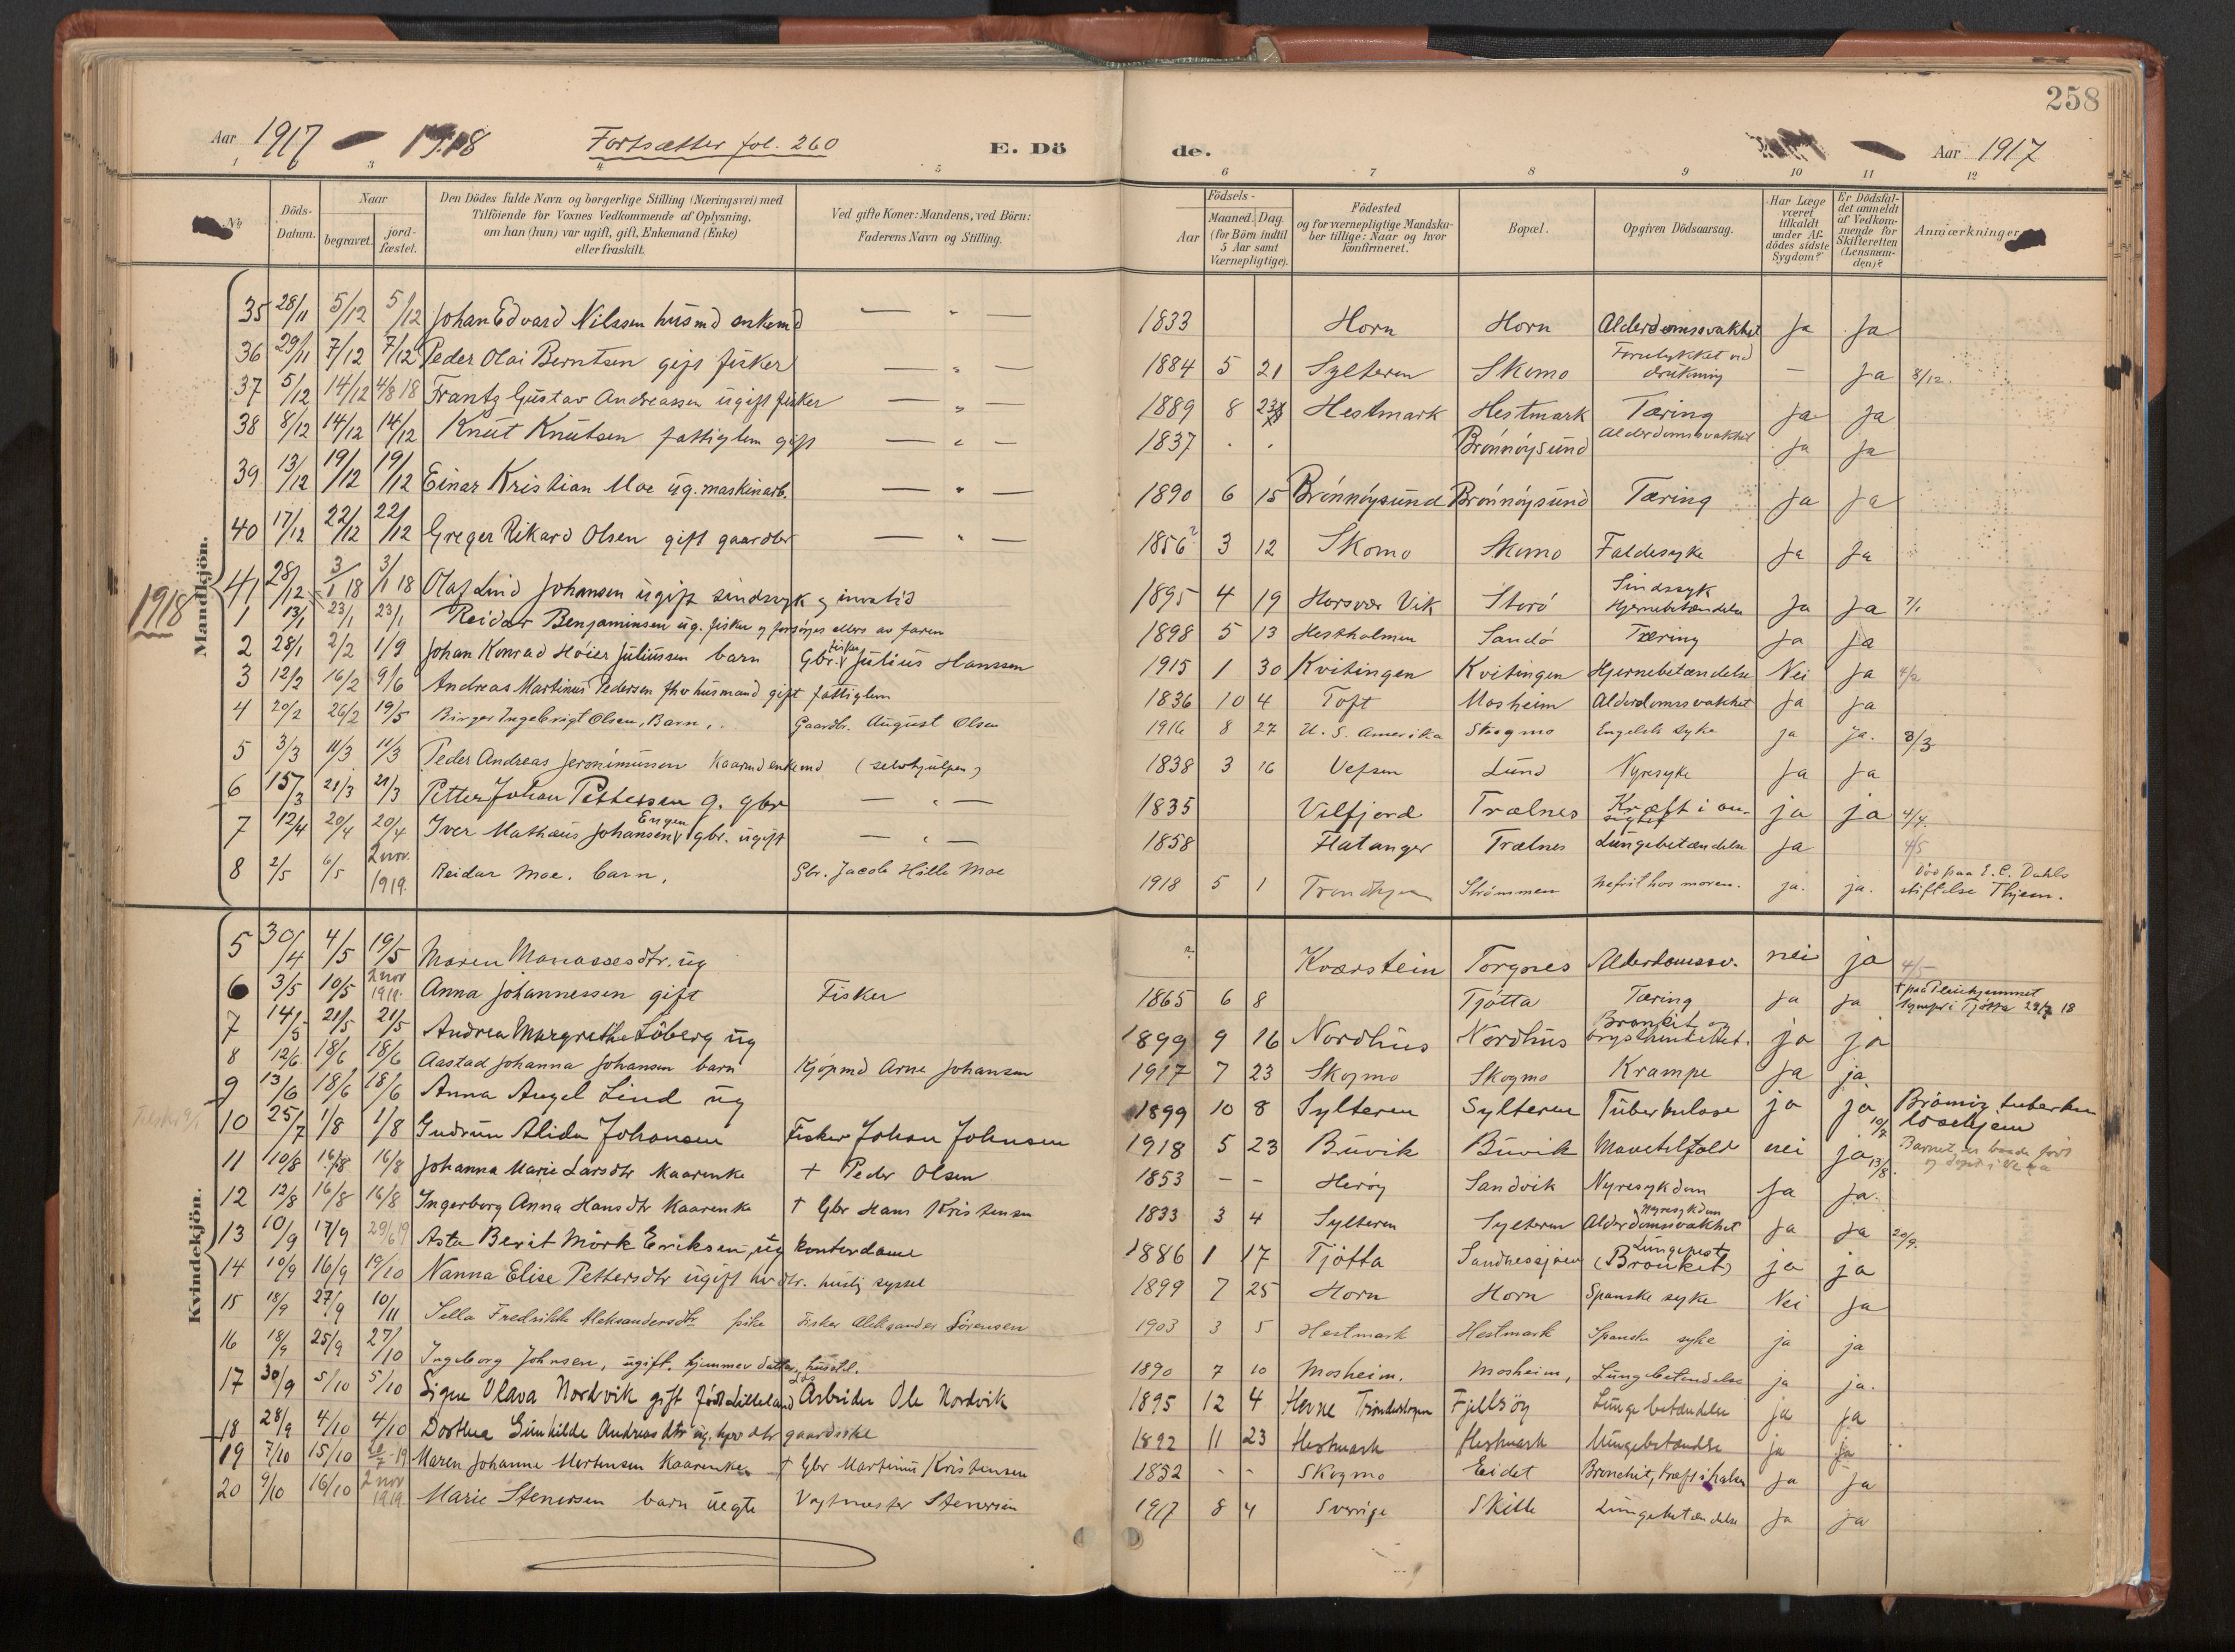 258
Aar 1917 - 1918 Fortsætter fol. 260 E. Dö de. Aar 1917
1 3 4 5 6 7 8 9 10 11 12
No. Döds-Datum. Naar begravet. jord-fæstet. Den Dödes fulde Navn og borgerlige Stilling (Næringsvei) med Tilföiende for Voxnes Vedkommende af Oplysning, om han (hun) var ugift, gift, Enkemand (Enke) eller fraskilt. Ved gifte Koner: Mandens, ved Börn: Faderens Navn og Stilling. Födsels- Aar Maaned. Dag. (for Börn indtil 5 Aar samt Værnepligtige). Födested og for værnepligtige Mandskaber tillige: Naar og hvor konfirmeret. Bopæl. Opgiven Dödsaarsag. Har Læge været tilkaldt under Afdödes sidste Sygdom? Er Dödsfaldet anmeldt af Vedkommende for Skifteretten (Lensmanden)? Anmærkninger
Mandkjön.
35 28/11 5/12 5/12 Johan Edvard Nilssen husmd enkemd — " — 1833 Horn Horn Alderdomssvakhet Ja Ja
36 29/11 7/12 7/12 Peder Olai Berntsen gift fisker — " — 1884 5 21 Sylteren Skomo Forulykket ved drukning — Ja 8/12.
37 5/12 14/12 4/8 18 Frantz Gustav Andreassen ugift fisker — " — 1889 8 23 Hestmark Hestmark Tæring Ja Ja
38 8/12 14/12 14/12 Knut Knutsen fattiglem gift — " — 1837 . . Brönnöysund Alderdomssvakhet Ja Ja
39 13/12 19/12 19/12 Einar Kristian Moe ug. maskinarb. — " — 1890 6 15 Brönnöysund Brönnöysund Tæring Ja Ja
40 17/12 22/12 22/12 Greger Rikard Olsen gift gaardbr — " — 1856? 3 12 Skomo Skomo Faldesyke Ja Ja
41 28/12 3/1 18 3/1 18 Olaf Lind Johansen ugift sindssyk og invalid 1895 4 19 Horsvær Vik Storö Sindssyk Hjernebetændelse Ja Ja 7/1
1918
1 13/1 23/1 23/1 Reidar Benjaminsen ug. fisker og forsörges ellers av faren 1898 5 13 Hestholmen Sandö Tæring Ja Ja
2 28/1 2/2 1/9 Johan Konrad Höier Juliussen barn Gbr. fisker Julius Hanssen 1915 1 30 Kvitingen Kvitingen Hjernebetændelse Nei Ja 4/2
3 12/2 16/2 9/6 Andreas Martinus Pedersen fhv husmand gift fattiglem 1836 10 4 Toft Mosheim Alderdomssvakhet Ja Ja
4 20/2 26/2 19/5 Birger Ingebrigt Olsen, Barn. Gaardbr. August Olsen 1916 8 27 U. S. Amerika Skogmo Engelsk syke ja ja. 8/3
5 3/3 11/3 11/3 Peder Andreas Jeronimussen Kaarmd enkemd (selvhjulpen) 1838 3 16 Vefsen Lund Nyresyke Ja Ja
6 15/3 21/3 21/3 Petter Johan Pettersen g. gbr — " — 1835 Vilfjord Trælnes Kræft i ansigtet ja ja 4/4.
7 12/4 20/4 20/4 Iver Mathæus Johansen Engen gbr. ugift — " — 1858 Flatanger Trælnes Lungebetændelse Ja 4/5
8 2/5 6/5 2 nov. 1919. Reidar Moe. barn. Gbr. Jacob Hille Moe 1918 5 1 Trondhjem Strömmen Nefrit hos moren. ja. ja. Död paa E. C. Dahls stiftelse Thjem.
Kvindekjön.
5 30/4 4/5 19/5 Maren Manassesdtr. ug ? Kværstein Torgnes Alderdomssv. nei ja 4/5
6 3/5 10/5 2 nov 1919. Anna Johannessen gift Fisker 1865 6 8 Tjötta Tæring Ja Ja † paa Pleiehjemmet Tjötta 29/7 18
7 14/5 21/5 21/5 Andrea Margrethe Löberg ug 1899 9 16 Nordhus Nordhus Bronkit og brysthindebet. ja ja
8 12/6 18/6 18/6 Aastad Johanna Johansen barn Kjöpmd Arne Johansen 1917 7 23 Skogmo Skogmo Krampe Ja ja
9 13/6 18/6 18/6 Anna Angel Lind ug 1899 10 8 Sylteren Sylteren Tuberkulose ja ja Brömsø tuberkulosehjem
10 25/7 1/8 1/8 Gudrun Alida Johansen Fisker Johan Johnsen 1918 5 23 Buvik Buvik Mavetilfald nei ja 13/8. Barnet er baade födt og döpt i
11 10/8 16/8 16/8 Johanna Marie Larsdtr Kaarenke † Peder Olsen 1853 - - Heröy Sandvik Nyresykdom Ja Ja.
12 12/8 16/8 16/8 Ingerborg Anna Hansdtr Kaarenke † Gbr Hans Kristensen 1833 3 4 Sylteren Sylteren Nyresykdom Alderdomssvakhet Ja Ja 20/9.
13 10/9 17/9 29/6 19 Asta Berit Mörk Eriksen, ug kontordame 1886 1 17 Tjötta Sandnessjöen Lungepest (Bronkit) ja ja
14 10/9 16/9 19/10 Nanna Elise Pettersdtr ugift hv dtr. huslig syssel 1899 7 25 Horn Horn Spanske syke Nei Ja
15 18/9 27/9 10/11 Sella Fredrikke Aleksandersdtr pike Fisker Aleksander Sörensen 1903 3 5 Hestmark Hestmark Spanske syke ja ja
16 18/9 25/9 27/10 Ingeborg Johnsen, ugift. hjemmev datter, husstel. 1890 7 10 Mosheim. Mosheim, Lungebetendelse ja ja.
17 30/9 5/10 5/10 Signe Olava Nordvik gift född Lilleland Arbeider Ole Nordvik 1895 12 4 Hevne Trönderlagen Fjellsöy Lungebetændelse ja ja
18 28/9 4/10 4/10 Dorthea Gunhilde Andreasdtr ug. hjv dtr gaardsstel 1892 11 23 Hestmark Hestmark Lungebetændelse ja ja
19 7/10 15/10 Maren Johanne Mortensen Kaarenke † Gbr Martinus Kristensen 1832 - - Skogmo Eidet Bronchit, Kræft i halsen Ja Ja
20 9/10 16/10 2 nov 1919 Marie Stenersen barn uegte Vagtmester Stenersen 1917 8 4 Sverrige Skille Lungebetændelse Ja Ja